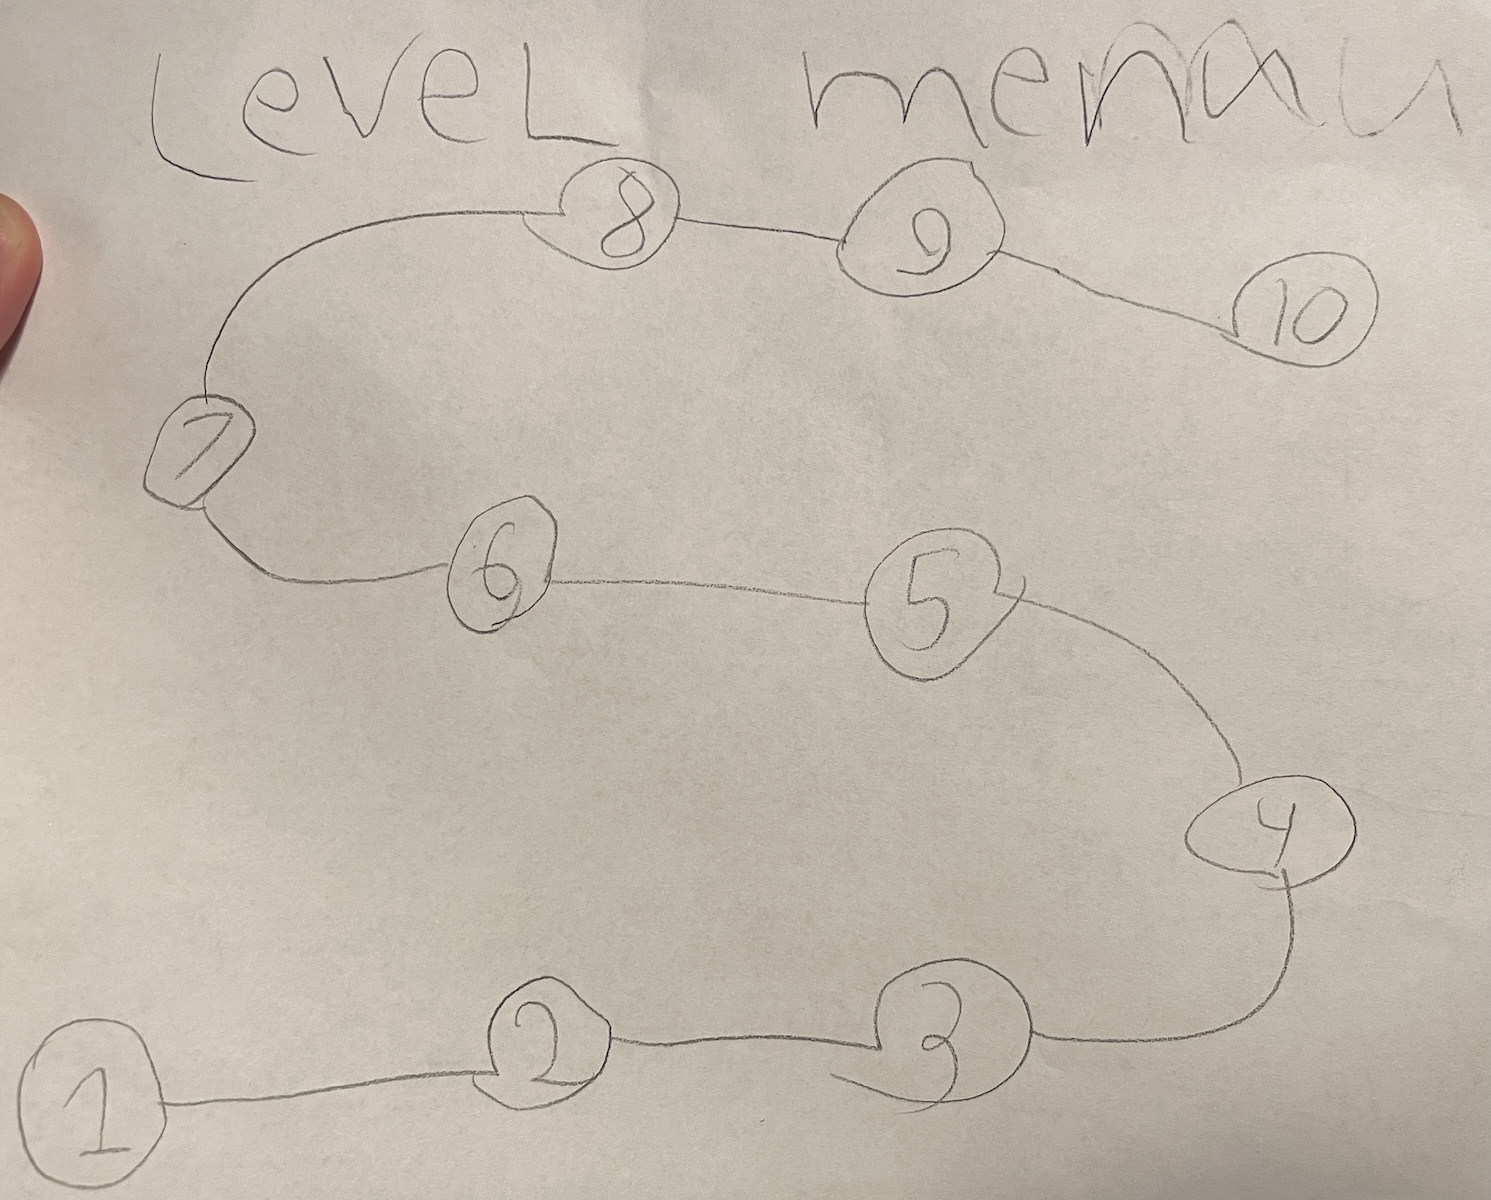 Level menu
8
9
10
7
6
5
4
3
2
1